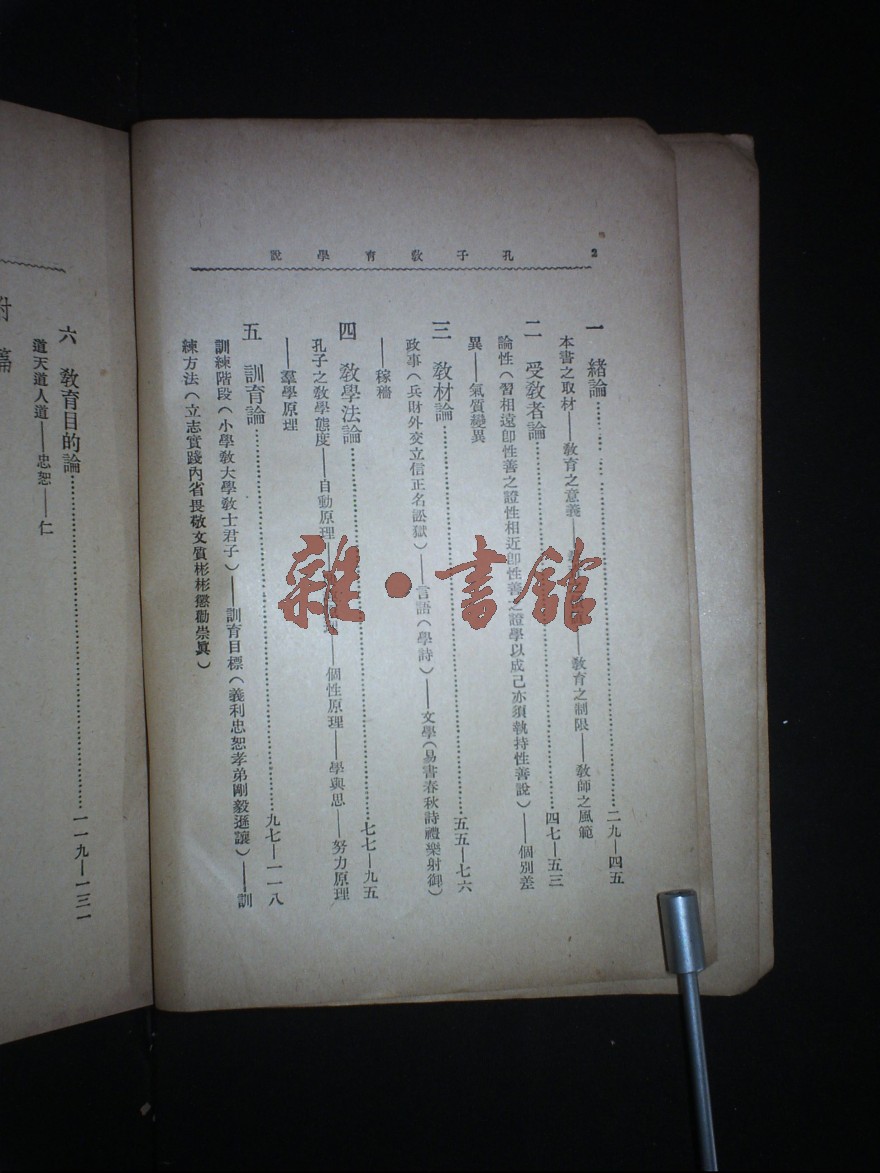 2 孔子教育學說
一 緒論 二九—四五
本書之取材——教育之意義——教育之制限——教師之風範
二 受教者論 四七—五三
論性（習相遠卽性善之證性相近卽性善之證學以成己亦須執持性善說）——個別差
異——氣質變異
三 教材論 五五—七六
政事（兵財外交立信正名訟獄）——言語（學詩）——文學（易書春秋詩禮樂射御）
——稼穡
四 教學法論 七七—九五
孔子之教學態度——自動原理——個性原理——學與思——努力原理
——羣學原理
五 訓育論 九七—一一八
訓練階段（小學敎大學敎士君子）——訓育目標（義利忠恕孝弟剛毅遜讓）——訓
練方法（立志實踐內省畏敬文質彬彬懲勸崇眞）
六 教育目的論 一一九—一三一
道天道人道——忠恕——仁
附篇
雜·書館